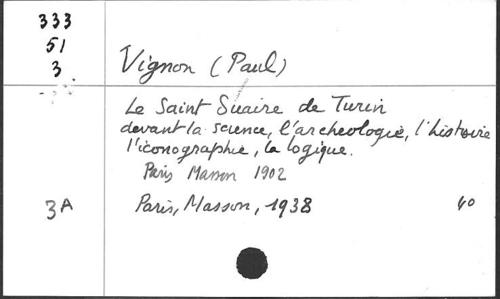 333
51
3
Vignon (Paul)
Le Saint Suaire de Turin
devant la science, l'archeologie, l'histoire
l'iconographie, la logique.
Paris Masson 1902
3A
Paris, Masson, 1938
40